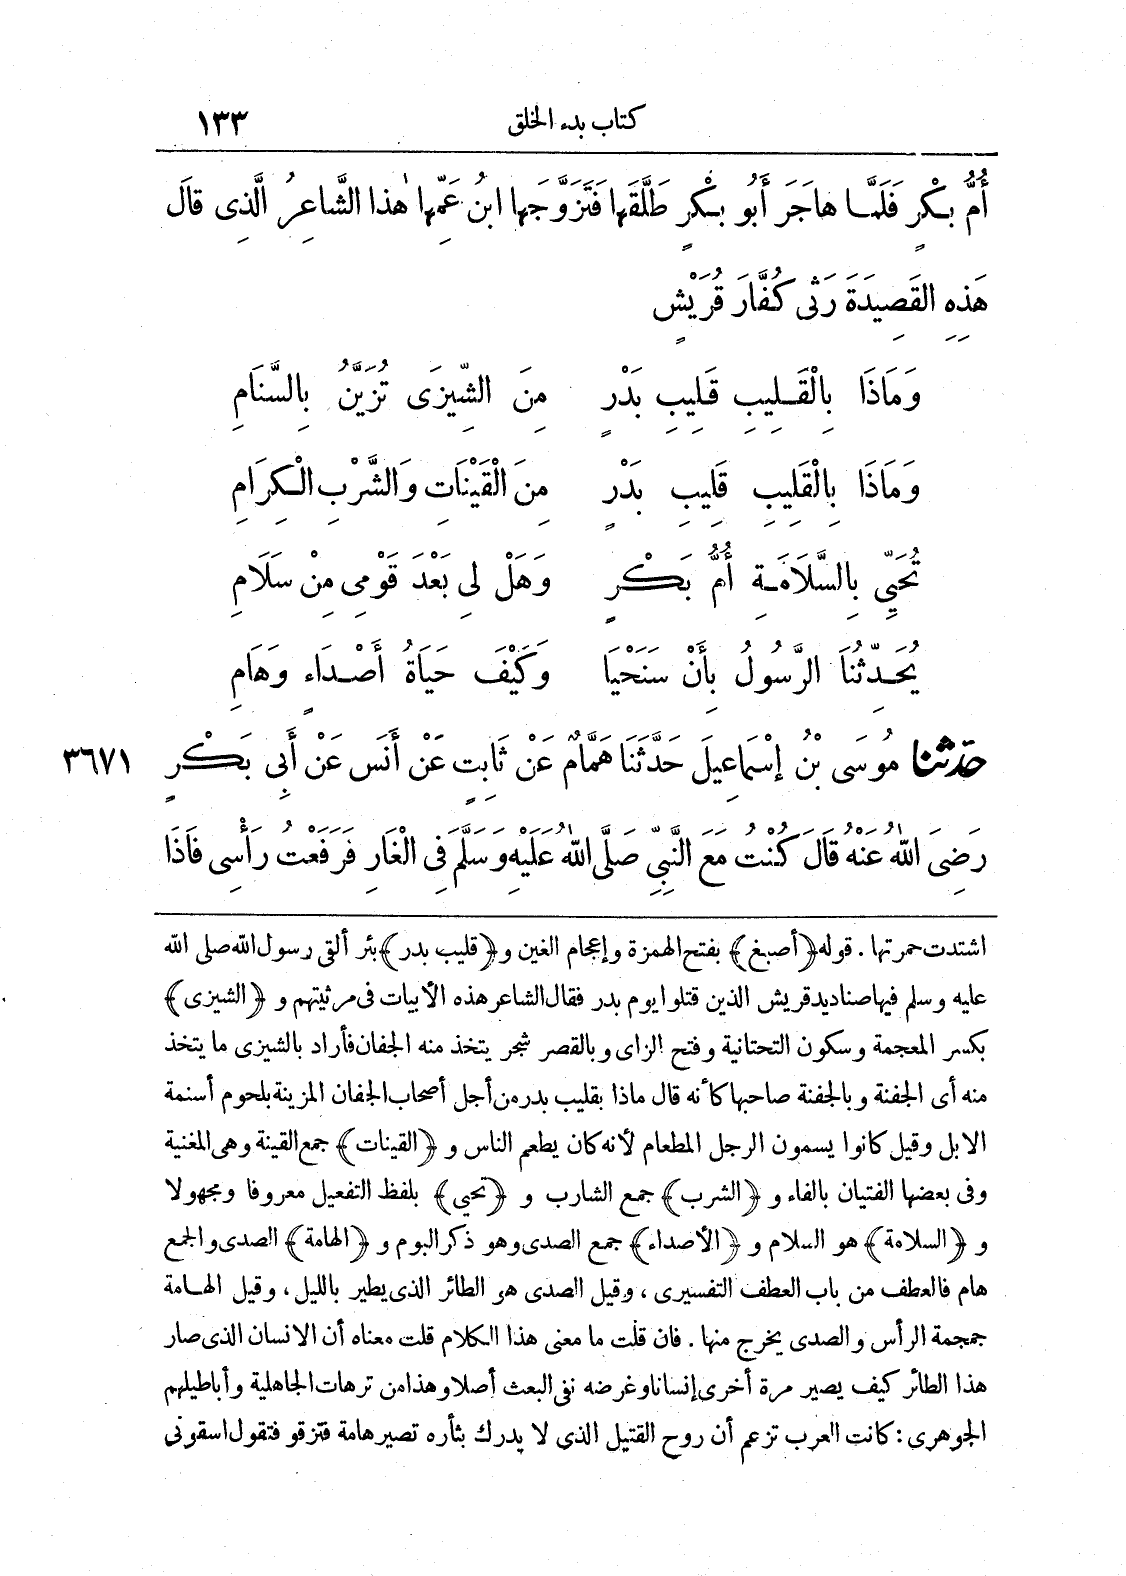 كتاب بدء الخلق ١٣٣
أُمُّ بَكْرٍ فَلَمَّا هاجَرَ أَبُو بَكْرٍ طَلَّقَها فَتَزَوَّجَها ابنُ عَمِّها هٰذا الشَّاعِرُ الَّذِى قالَ
هَذِهِ القَصِيدَةَ رَثْى كُفَّارَ قُرَيْشٍ
وَمَاذَا بِالْقَلِيبِ قَلِيبِ بَدْرٍ مِنَ الشِّيزَى تُزَيَّنُ بِالسَّنَامِ
وَمَاذَا بِالْقَلِيبِ قَلِيبِ بَدْرٍ مِنَ الْقَيْنَاتِ وَالشَّرْبِ الْكِرَامِ
تُحَيِّي بِالسَّلَامَةِ أُمُّ بَكْرٍ وَهَلْ لِى بَعْدَ قَوْمِى مِنْ سَلَامِ
يُحَدِّثُنَا الرَّسُولُ بِأَنْ سَنَحْيَا وَكَيْفَ حَيَاةُ أَصْدَاءٍ وَهَامِ
حَدَّثَنَا مُوسَى بْنُ إِسْمَاعِيلَ حَدَّثَنَا هَمَّامٌ عَنْ ثَابِتٍ عَنْ أَنَسٍ عَنْ أَبِى بَكْرٍ ٣٦٧١
رَضِىَ اللهُ عَنْهُ قَالَ كُنْتُ مَعَ النَّبِيِّ صَلَّى اللهُ عَلَيْهِ وَسَلَّمَ فِى الْغَارِ فَرَفَعْتُ رَأْسِى فَاذَا
اشتدت حمرتها . قوله (أصبغ) بفتح الهمزة وإعجام الغين و (قليب بدر) بئر ألقى رسول الله صلى الله
عليه وسلم فيها صناديد قريش الذين قتلوا يوم بدر فقال الشاعر هذه الأبيات فى مرثيتهم و (الشيزى)
بكسر المعجمة وسكون التحتانية وفتح الزاى وبالقصر شجر يتخذ منه الجفان فأراد بالشيزى ما يتخذ
منه أى الجفنة وبالجفنة صاحبها كأنه قال ماذا بقليب بدر من أجل أصحاب الجفان المزينة بلحوم أسنمة
الابل وقيل كانوا يسمون الرجل المطعام لأنه كان يطعم الناس و (القينات) جمع القينة وهى المغنية
وفى بعضها الفتيان بالفاء و (الشرب) جمع الشارب و (تحيى) بلفظ التفعيل معروفا ومجهولا
و (السلامة) هو السلام و (الأصداء) جمع الصدى وهو ذكر البوم و (الهامة) الصدى والجمع
هام فالعطف من باب العطف التفسيرى ، وقيل الصدى هو الطائر الذى يطير بالليل ، وقيل الهامة
جمجمة الرأس والصدى يخرج منها . فان قلت ما معنى هذا الكلام قلت معناه أن الانسان الذى صار
هذا الطائر كيف يصير مرة أخرى إنسانا وغرضه نفى البعث أصلا وهذا من ترهات الجاهلية وأباطيلهم
الجوهرى : كانت العرب تزعم أن روح القتيل الذى لا يدرك بثأره تصير هامة فتزقو فتقول اسقونى